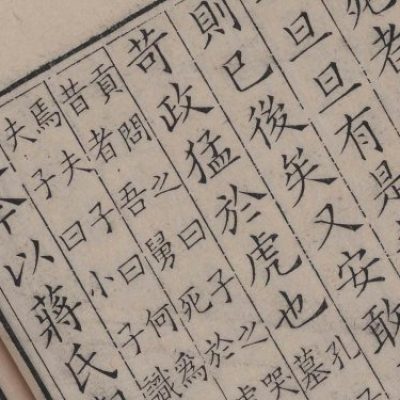 死者
旦旦有是
則已後矣又安敢
苛政猛於虎也孔
墓
貢問之曰子之哭
昔者吾舅死於
焉夫子曰何爲
夫子曰小子識
以蔣氏